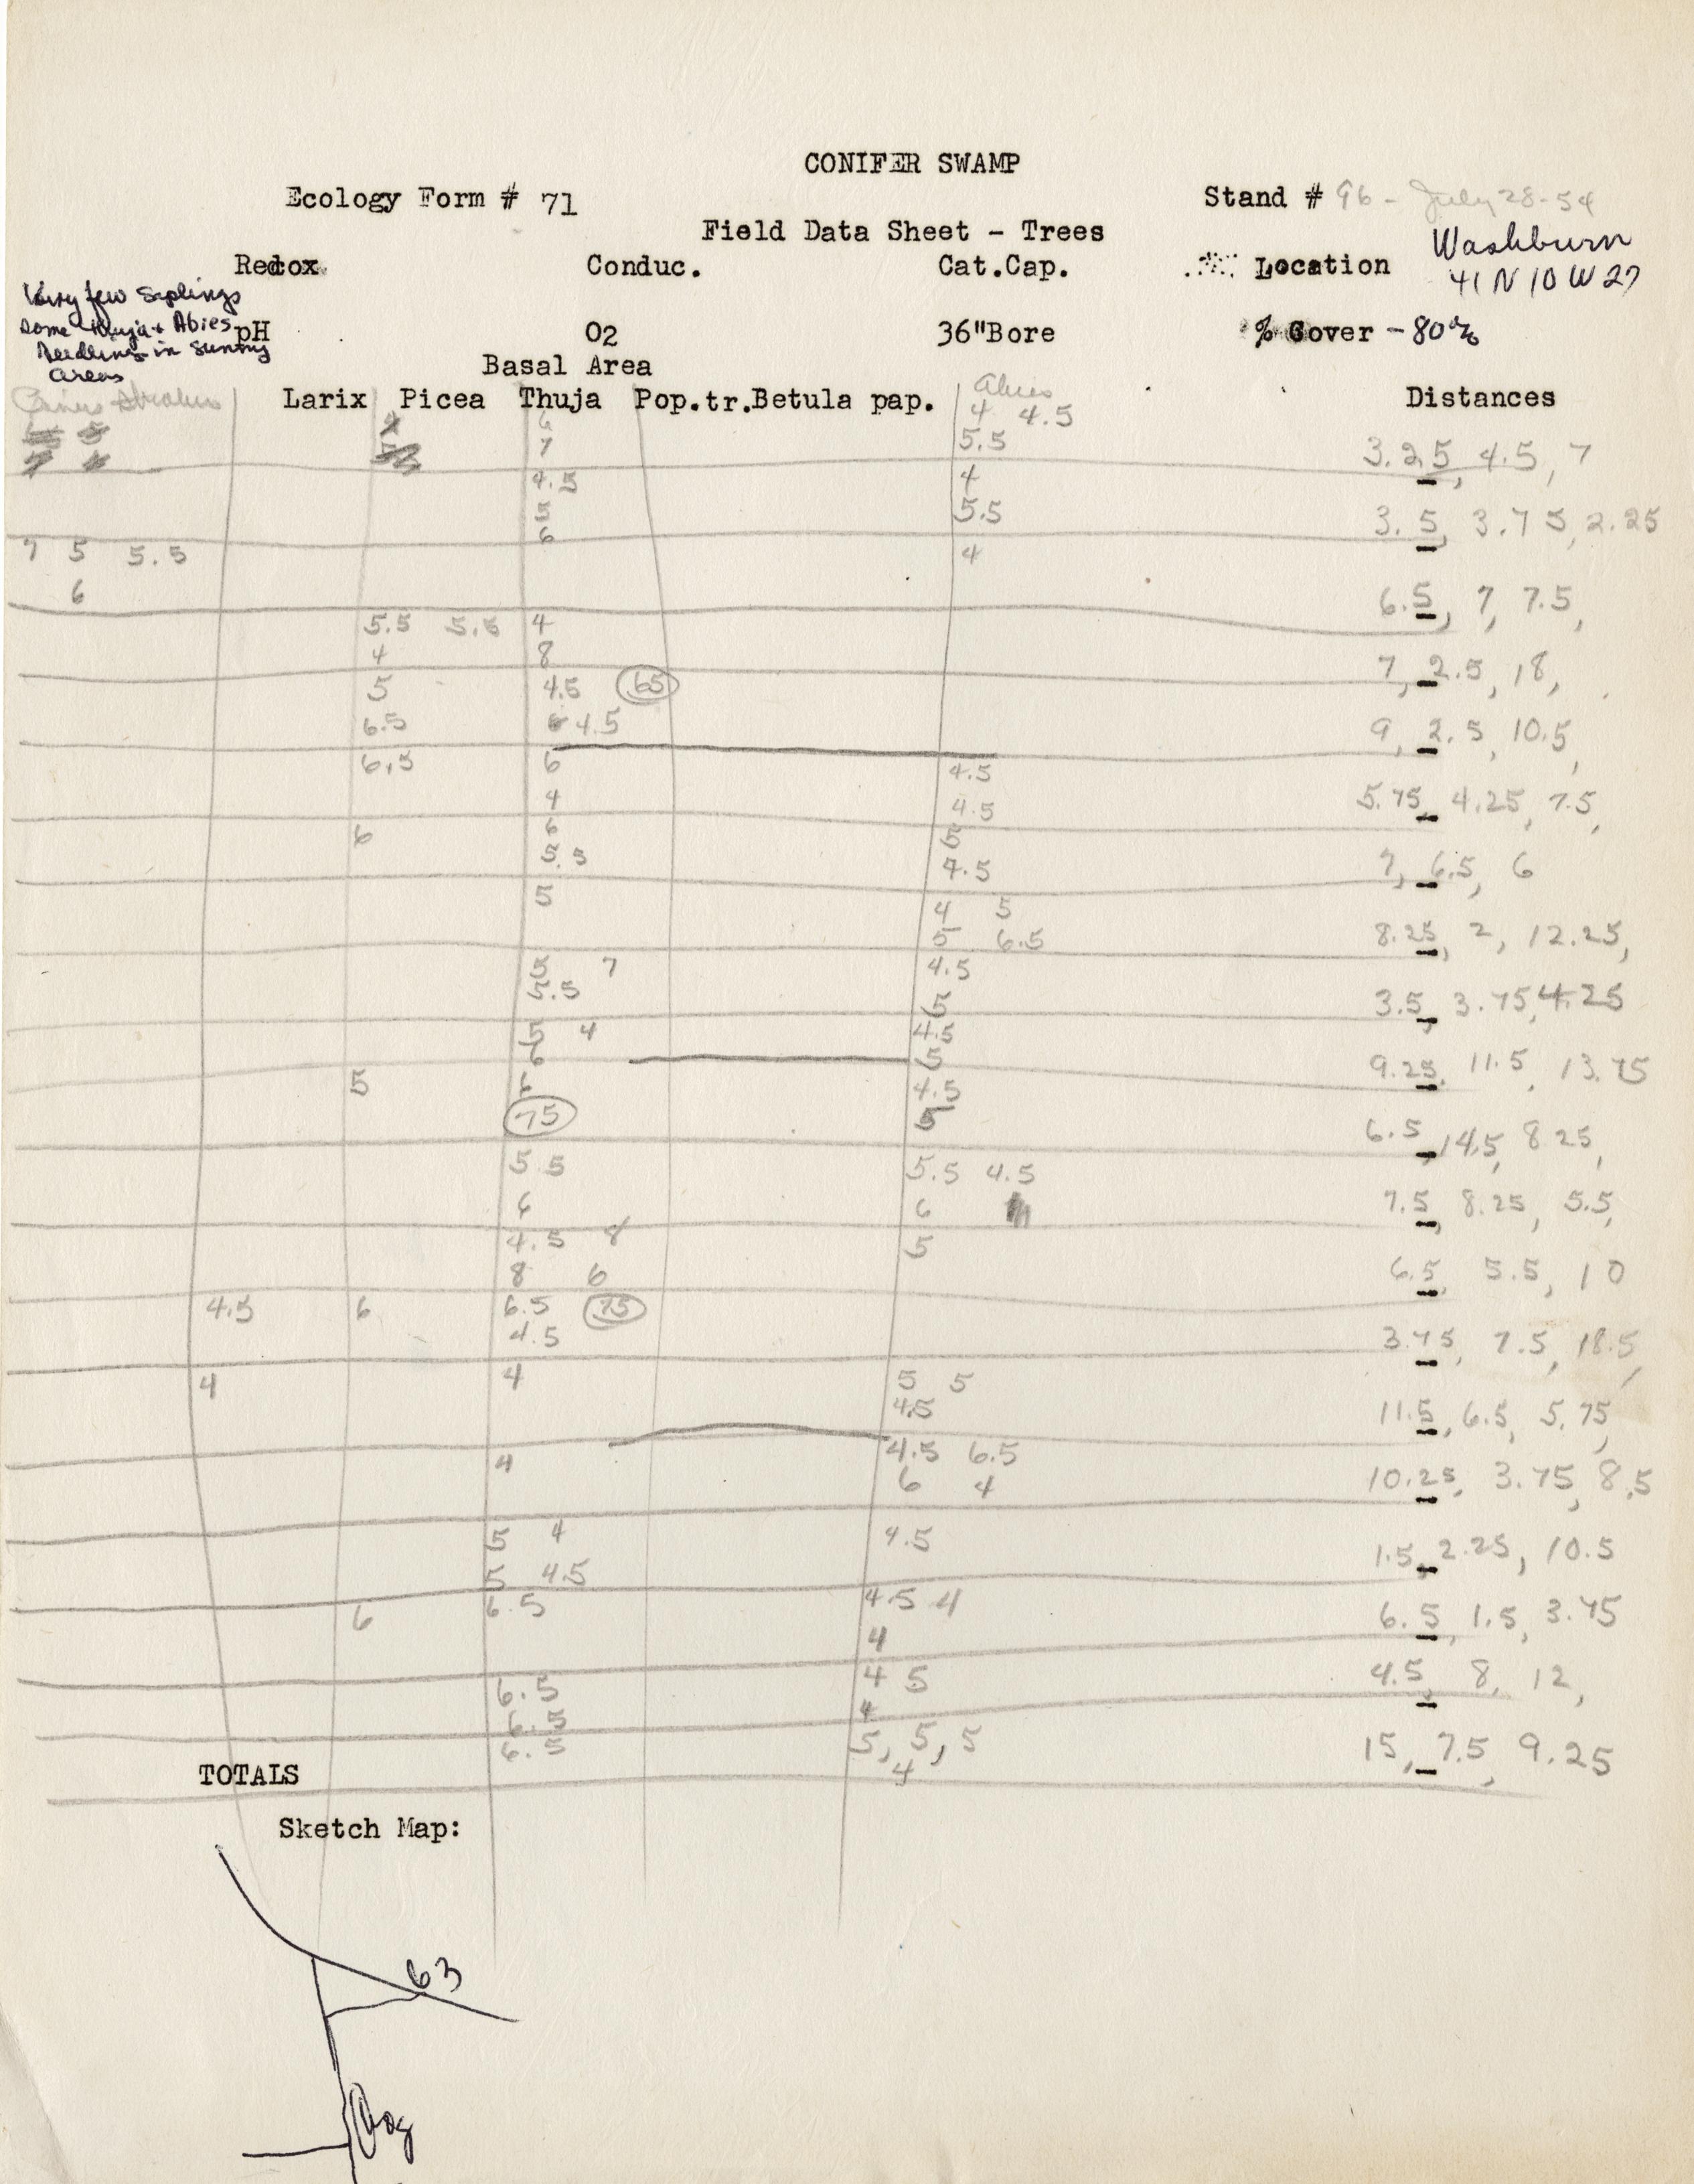 CONIFER SWAMP
Ecology Form # 71 Stand # 96 - July 28-54
Field Data Sheet - Trees
Redox Conduc. Cat.Cap. Location Washburn
41 N 10 W 27
Very few saplings
some Thuja + Abies
seedlings in sunny
areas
pH O2 36"Bore % Cover - 80%
Basal Area
Pinus strobus Larix Picea Thuja Pop.tr. Betula pap. Abies Distances
6 4 4.5
7 5.5 3.25, 4.5, 7
4.5 4
5 5.5 3.5, 3.75, 2.25
6
7 5 5.5 4
6 6.5, 7, 7.5,
5.5 5.5 4
4 8 7, 2.5, 18,
5 4.5 65
6.5 4.5 9, 2.5, 10.5,
6.5 6 4.5
4 4.5 5.75, 4.25, 7.5,
6 6 5
5.5 4.5 7, 6.5, 6
5 4 5
5 6.5 8.25, 2, 12.25,
5 7 4.5
5.5 5 3.5, 3.75, 4.25
5 4 4.5
6 5 9.25, 11.5, 13.75
5 6 4.5
75 5 6.5, 14.5, 8.25,
5.5 5.5 4.5
6 6 7.5, 8.25, 5.5,
4.5 8 5
8 6 6.5, 5.5, 10
4.5 6 6.5 75
4.5 3.75, 7.5, 18.5,
4 4 5 5
4.5 11.5, 6.5, 5.75,
4 4.5 6.5
6 4 10.25, 3.75, 8.5
5 4 4.5
5 4.5 1.5, 2.25, 10.5
6 6.5 4.5 4
4 6.5, 1.5, 3.75
6.5 4 5 4.5, 8, 12,
6.5 4
6.5 5, 5, 5 15, 7.5, 9.25
4
TOTALS
Sketch Map:
63
Bog